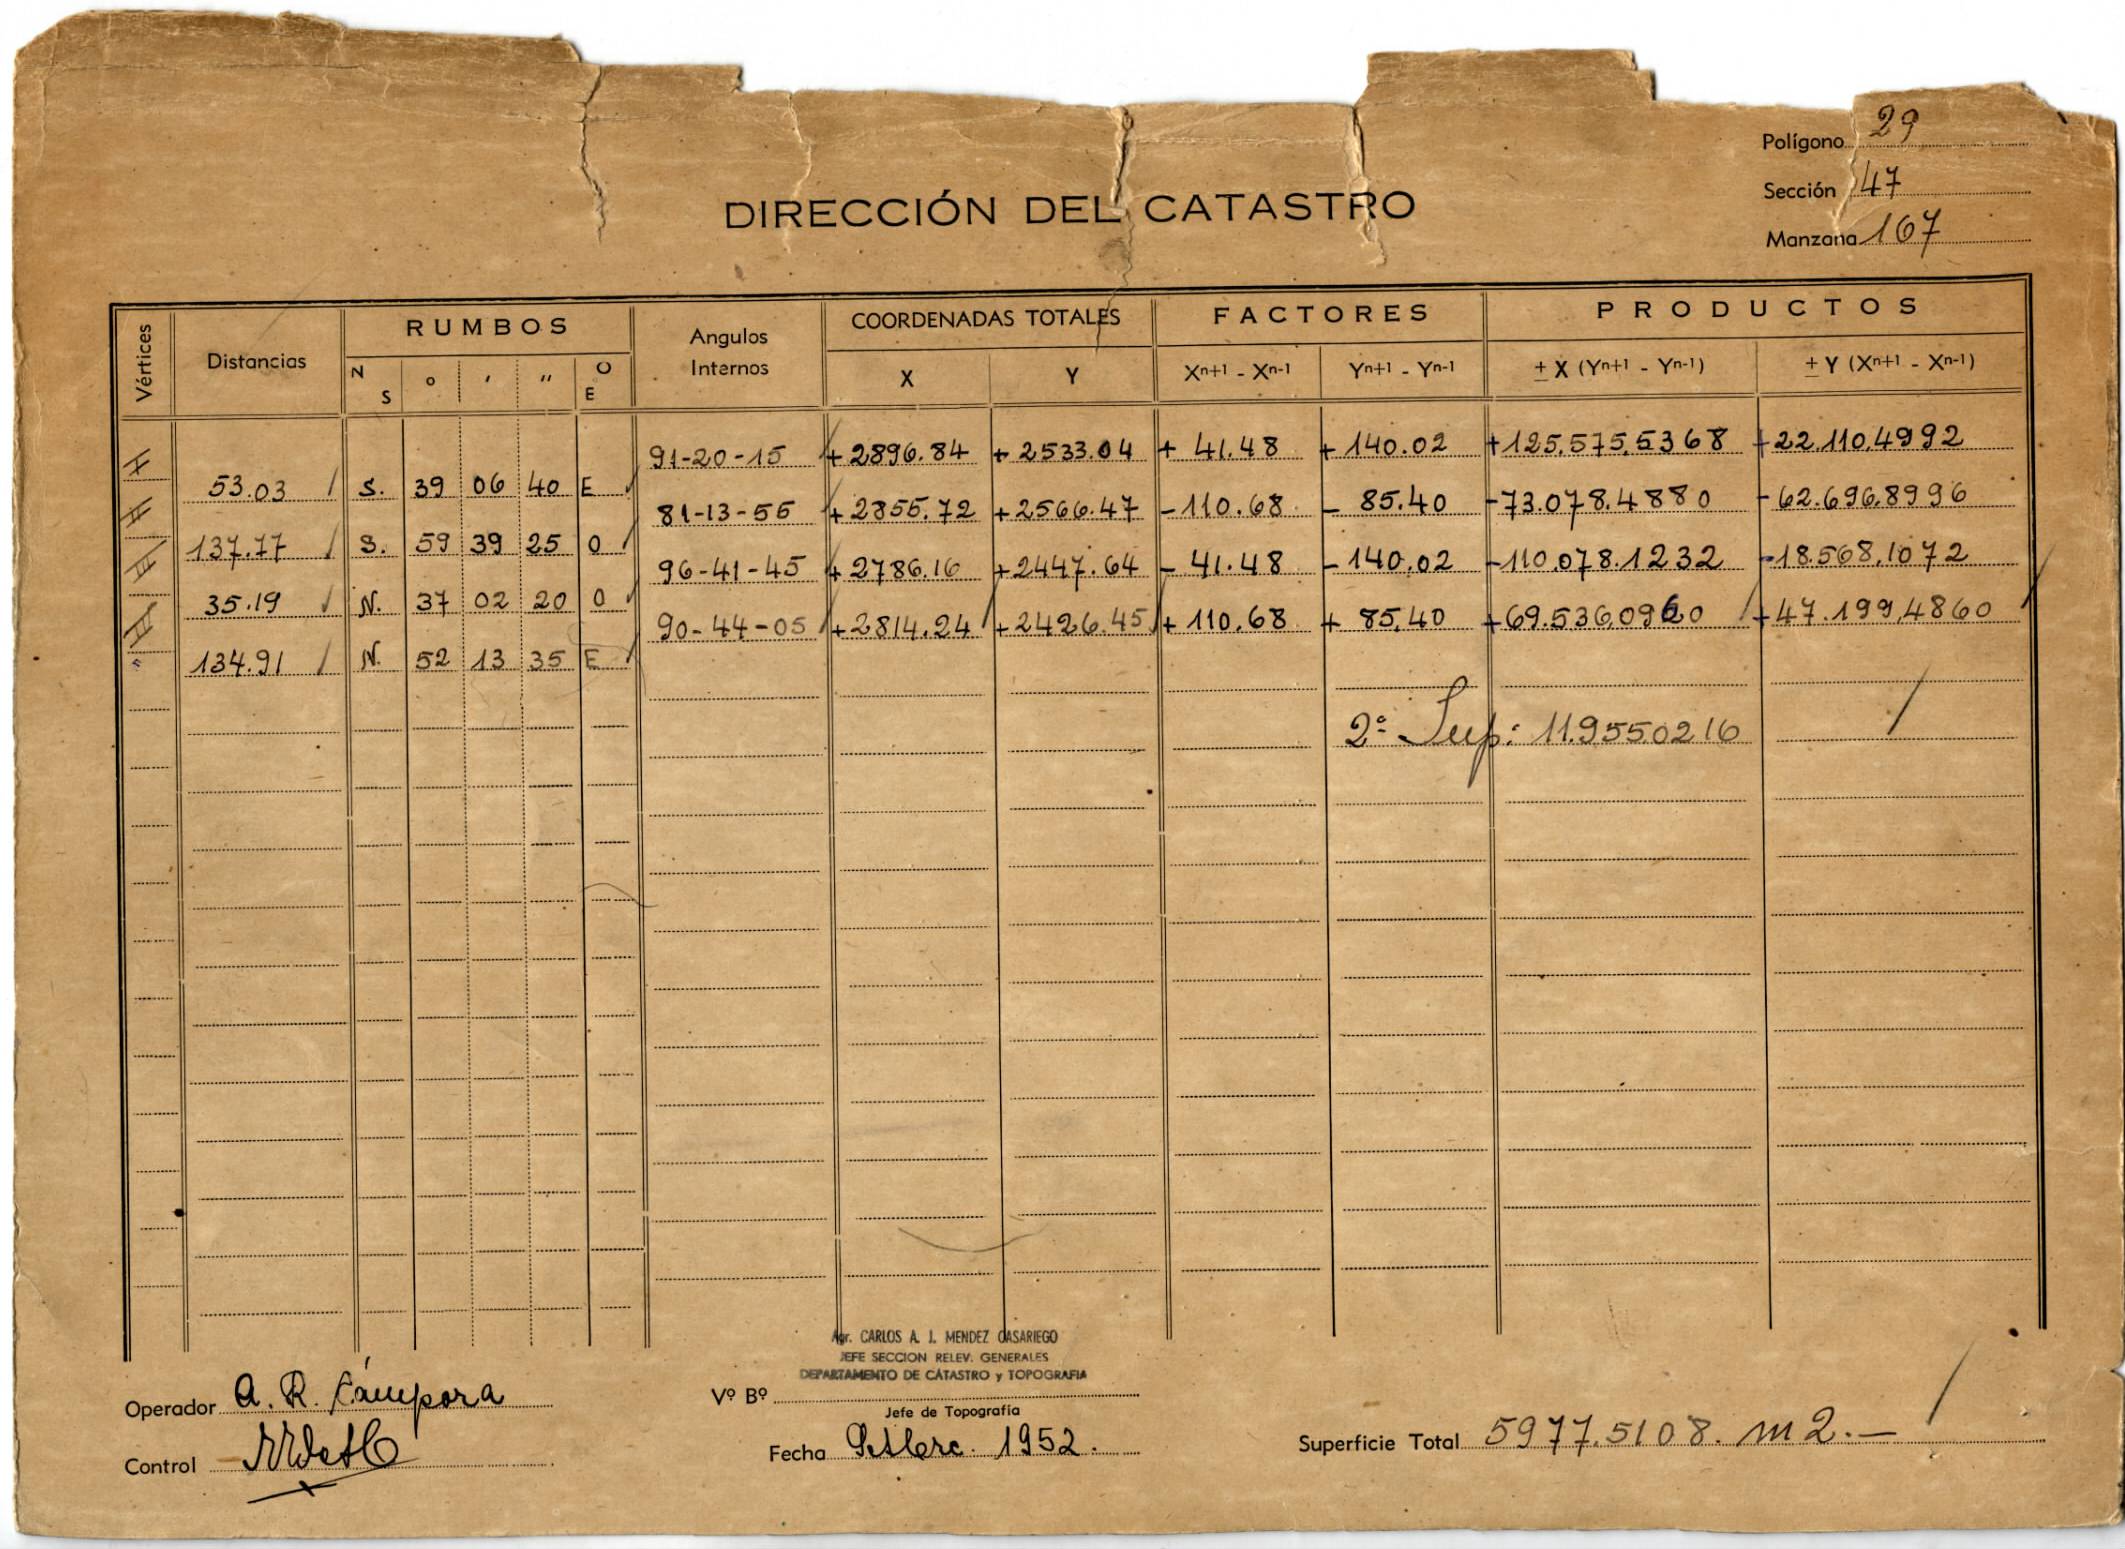 Polígono 29
Sección 47
Manzana 167
DIRECCIÓN DEL CATASTRO
Vértices Distancias RUMBOS Angulos Internos COORDENADAS TOTALES FACTORES PRODUCTOS
N S ° ' '' O E X Y Xn+1 - Xn-1 Yn+1 - Yn-1 ± X (Yn+1 - Yn-1) ± Y (Xn+1 - Xn-1)
I 91-20-15 +2896.84 +2533.04 + 41.48 + 140.02 +125.575,5368 +22.110,4992
53.03 S. 39 06 40 E
II 81-13-55 +2855.72 +2566.47 -110.68 - 85.40 -73.078.4880 -62.696,8996
137.77 S. 59 39 25 O
III 96-41-45 +2786.16 +2447.64 - 41.48 -140.02 -110.078.1232 -18.568,1072
35.19 N. 37 02 20 O
IV 90-44-05 +2814.24 +2426.45 + 110.68 + 85.40 +69.536,0960 +47.199,4860
134.91 N. 52 13 35 E
2ª Sup: 11.955.0216
Agr. CARLOS A. J. MENDEZ CASARIEGO
JEFE SECCION RELEV. GENERALES
DEPARTAMENTO DE CATASTRO y TOPOGRAFIA
Operador A. R. Cámpora
Vº Bº
Jefe de Topografía
Control
Fecha Setbre. 1952.
Superficie Total 5977.5108. m2.—